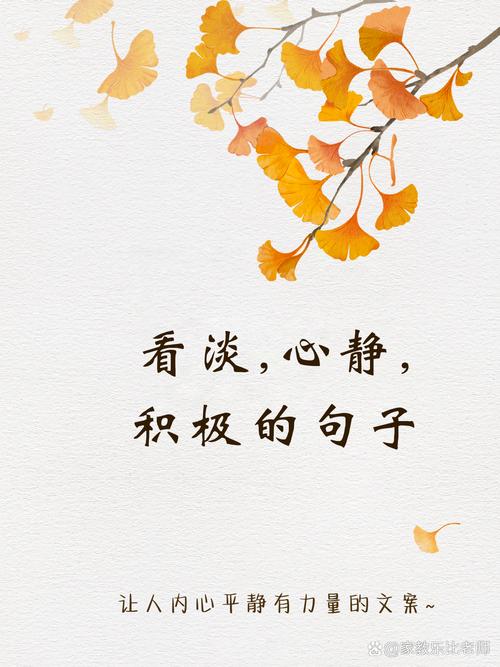 看淡,心静,
积极的句子
让人内心平静有力量的文案~
@家教乐比老师